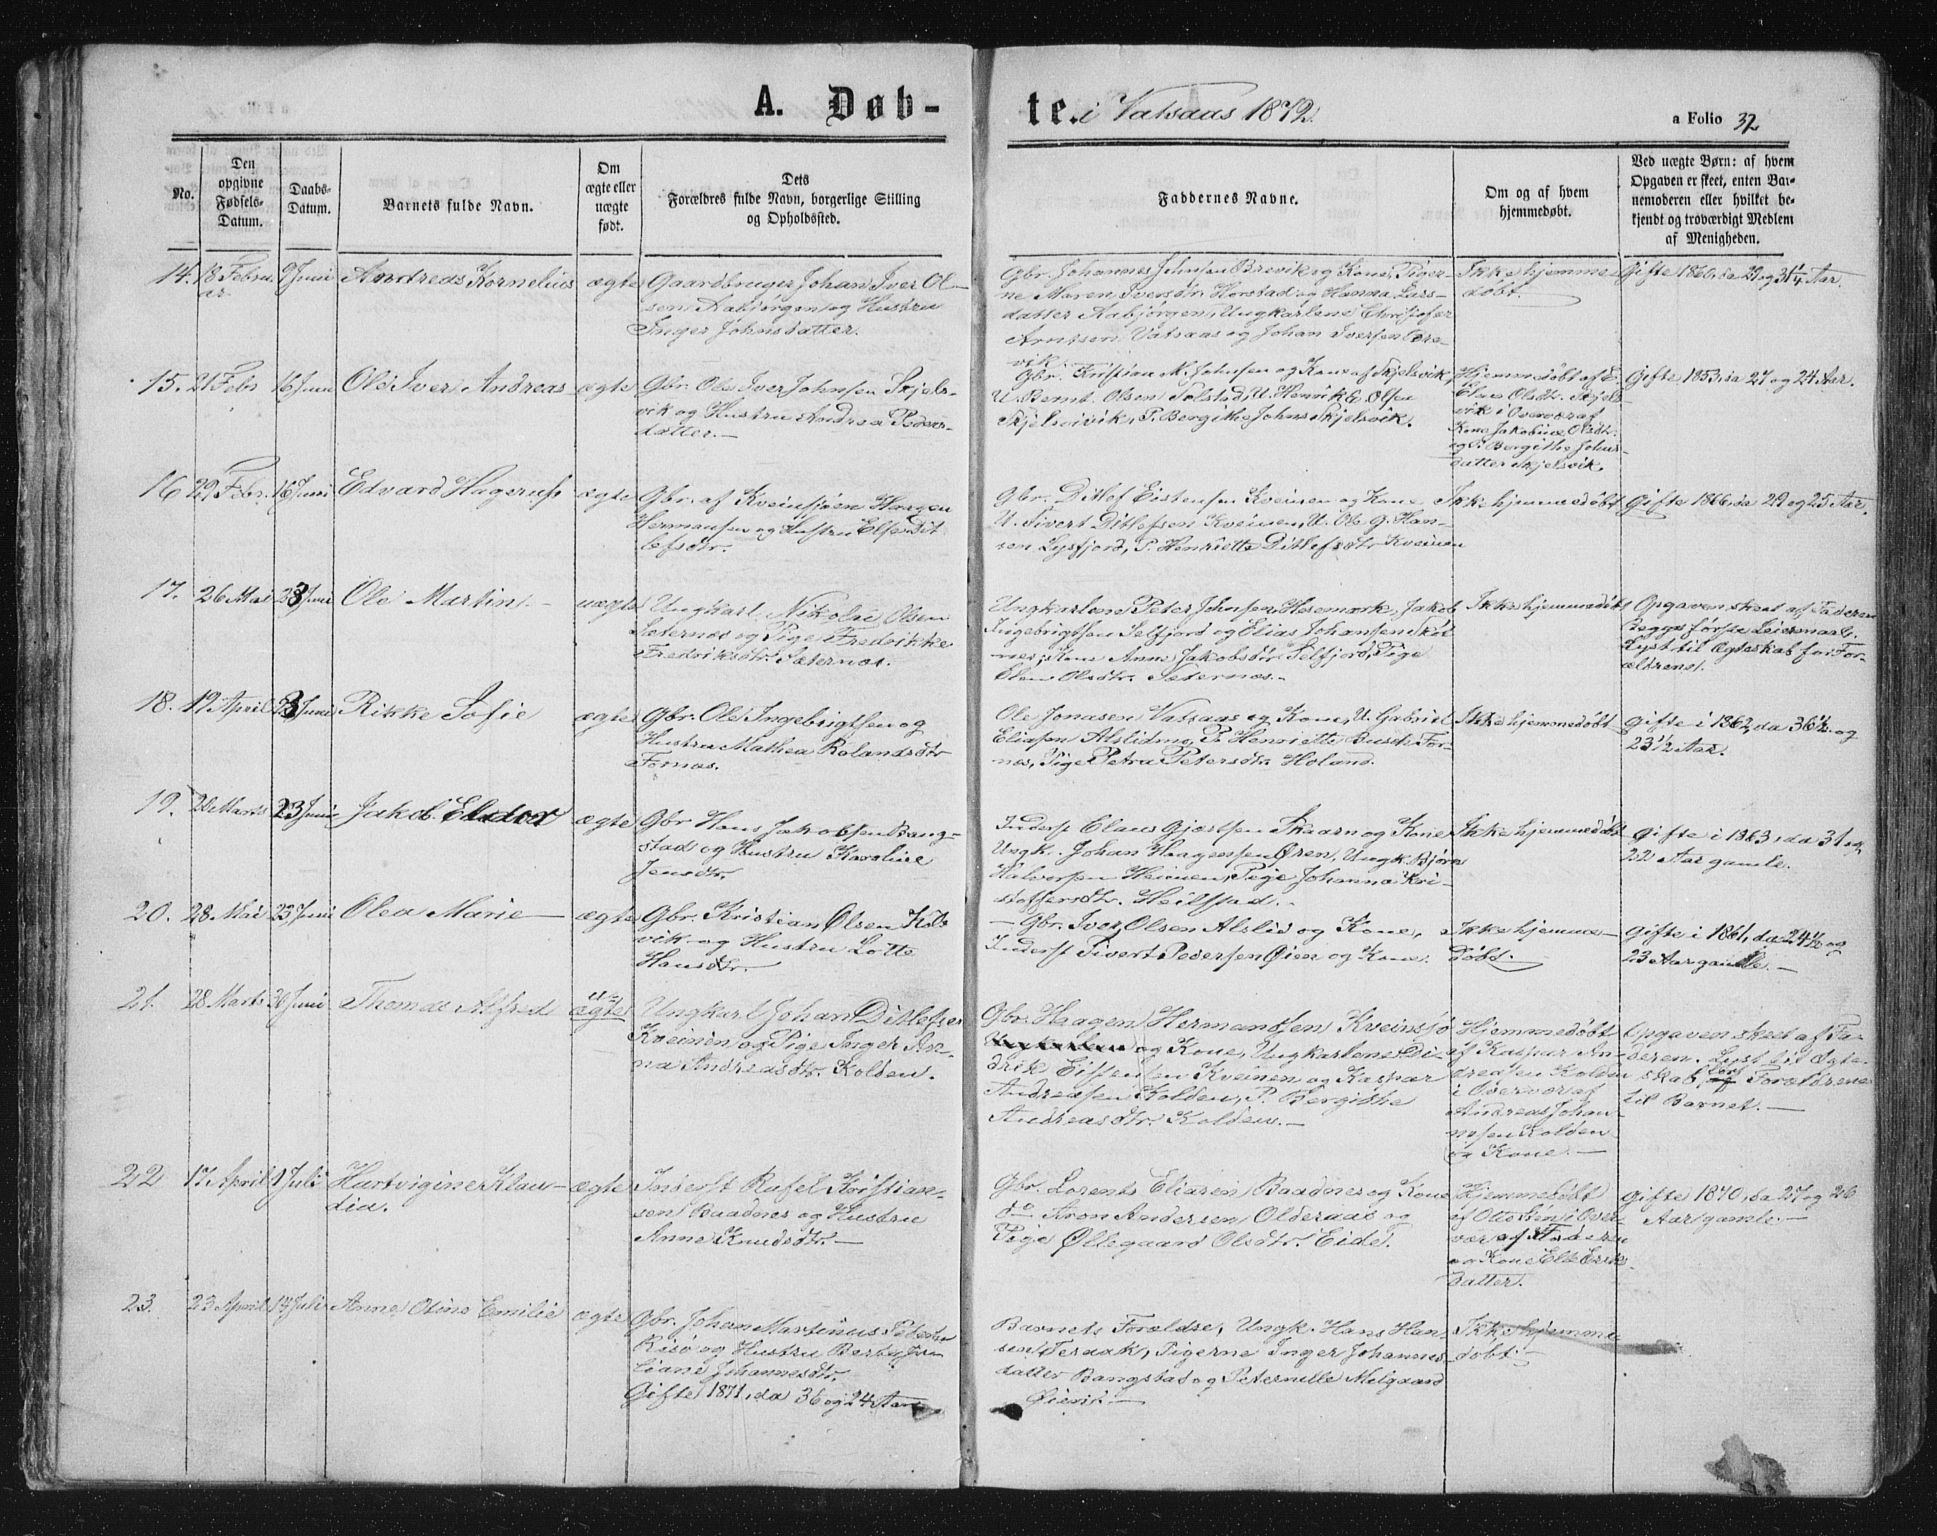 A. Døb-
te. i Vatsaas 1872.
a Folio 32
No.
Den opgivne Fødsels-Datum.
Daabs-Datum.
Barnets fulde Navn.
Om ægte eller uægte født.
Dets Forældres fulde Navn, borgerlige Stilling og Opholdssted.
Faddernes Navne.
Om og af hvem hjemmedøbt.
Ved uægte Børn: af hvem Opgaven er skeet, enten Barnemoderen eller hvilket bekjendt og troværdigt Medlem af Menigheden.
14. 18 Februar 9 Juni Andreas Kornelius ægte
Gaardbruger Johan Iver Ol-
sen Aabjørgen og Hustru
Inger Johnsdatter.
Gbr. Johannes Johnsen Brevik og Kone, Piger-
ne Maren Iversdtr. Horstad og Hanna Lars-
datter Aabjørgen, Ungkarlene Christofer
Arntsen Vatsaas og Johan Iversen Bre-
vik
Ikke hjemme-
døbt.
Gifte 1860, da 29 og 31 1/4 Aar.
15. 21 Febr 16 Juni Ole Iver Andreas ægte
Gbr. Ole Iver Johnsen Skjels-
vik og Hustru Andrea Peders-
datter.
Gbr. Kristian M. Johnsen og Kone af Skjelsvik,
U. Bernt Olsen Solstad, U. Henrik E. Olsen
Skjelsvik, P. Bergithe Johns Skjelsvik.
Hjemmedøbt af
Olsdtr. Skjels-
vik i Overvær af
Kone Jakobine Olsdtr.
og P. Bergithe Johns-
datter Skjelsvik.
Gifte 1853, da 27 og 24 Aar.
16 29 Febr. 16 Juni Edvard Hagerup ægte
Gbr. af Kveinsjøen Haagen
Hermansen og Hustru Else Dit
lefsdtr.
Gbr. Ditlef Eistensen Kveinen og Kone
U. Sivert Ditlefsen Kveinen, U. Ole G. Han-
sen Lysfjord, P. Henriette Ditlefsdtr Kveinen
Ikke hjemmedøbt
Gifte 1866, da 29 og 25 Aar.
17. 26 Mai 23 Juni Ole Martin. uægte
Ungkarl Nikolai Olsen
Sæternæs og Pige Fredrikke
Fredriksdtr. Sæternæs.
Ungkarlene Peter Johnsen Horsmærk, Jakob
Ingebrigtsen Selfjord og Elias Johansen
Kone Anne Jakobsdtr. Selfjord, Pige
Olsdtr. Sæternæs.
Ikke hjemmedøbt
Opgaven skeet af Faderen
Begges første Leiermaal.
Lyst til Ægteskab for For-
ældrene.
18. 19 April 23 Juni Rikke Sofie ægte
Gbr. Ole Ingebrigtsen og
Hustru Mathea Rolandsdtr
Fornæs.
Ole Jonasen Vatsaas og Kone, U. Gabriel
Eliasen Alslidmo, P. Henriette Busch For-
næs, Pige Petra Petersdtr. Holand.
Ikke hjemmedøbt
Gifte i 1862, da 36 1/2 og
23 1/2 Aar.
19. 20 Marts 23 Juni Jakob ægte
Gbr Hans Jakobsen Bang-
stad og Hustru Karoline
Jensdtr
Inderst Claus Gjertsen Skaarn og Kone
Ungk. Johan Haagensen Øren, Ungk. Bjørn
Halvorsen Heimen, Pige Johanna Kri-
stoffersdtr. Heilstad.
Ikke hjemmedøbt
Gifte i 1863, da 31 og
22 Aar gamle.
20. 28 Mai 23 Juni Olea Marie ægte
Gbr. Kristian Olsen Kols
vik og Hustru Lotte
Hansdtr.
Gbr. Iver Olsen Alslid og Kone,
Inderst Sivert Pedersen Øien og Kone.
Ikke hjemme-
døbt.
Gifte i 1861, da 24 1/2 og
23 Aar gamle.
21. 28 Marts 26 Juni Thomas Alfred u-
ægte
Ungkarl Johan Ditlefsen
Kveinen og Pige Inger An-
na Andreasdtr. Kolden.
Gbr. Haagen Hermansen Kveinsjø
og Kone, Ungkarlene Di-
drik Eistensen Kveinen og Kaspar
Andreasen Kolden, P. Bergithe
Andreasdtr. Kolden.
Hjemmedøbt
af Kaspar An-
dreasen Kolden
i Overvær af
Andreas Johan-
nesen Kolden
og Kone.
Opgaven skeet af Fa-
deren. Lyst til Ægte-
skab for Forældrene
til Barnet.
22 17 April 1 Juli Hartvigine Klau-
dia. ægte
Inderst Rafel Kristian-
sen Baadnes og Hustru
Anne Knudsdtr.
Gbr. Lorents Eliasen Baadnes og Kone
do Aron Andersen Olderaas og
Pige Øllegaard Olsdtr. Eide.
Hjemmedøbt
af Otto i Over-
vær af Faderen
og Kone Else Erik
datter.
Gifte 1870, da 27 og 26
Aar gamle.
23. 23 April 14 Juli Anne Oline Emilie ægte
Gbr. Johan Martinus Peterson
Risø og Hustru Berth Ju-
liane Johannesdtr.
Gifte 1871, da 36 og 24 Aar
Barnets Forældre, Ungk. Hans Han-
sen Teraak, Pigerne Inger Johannes-
datter Bangstad og Peternelle Melgaard
Øievik
Ikke hjemme
døbt.